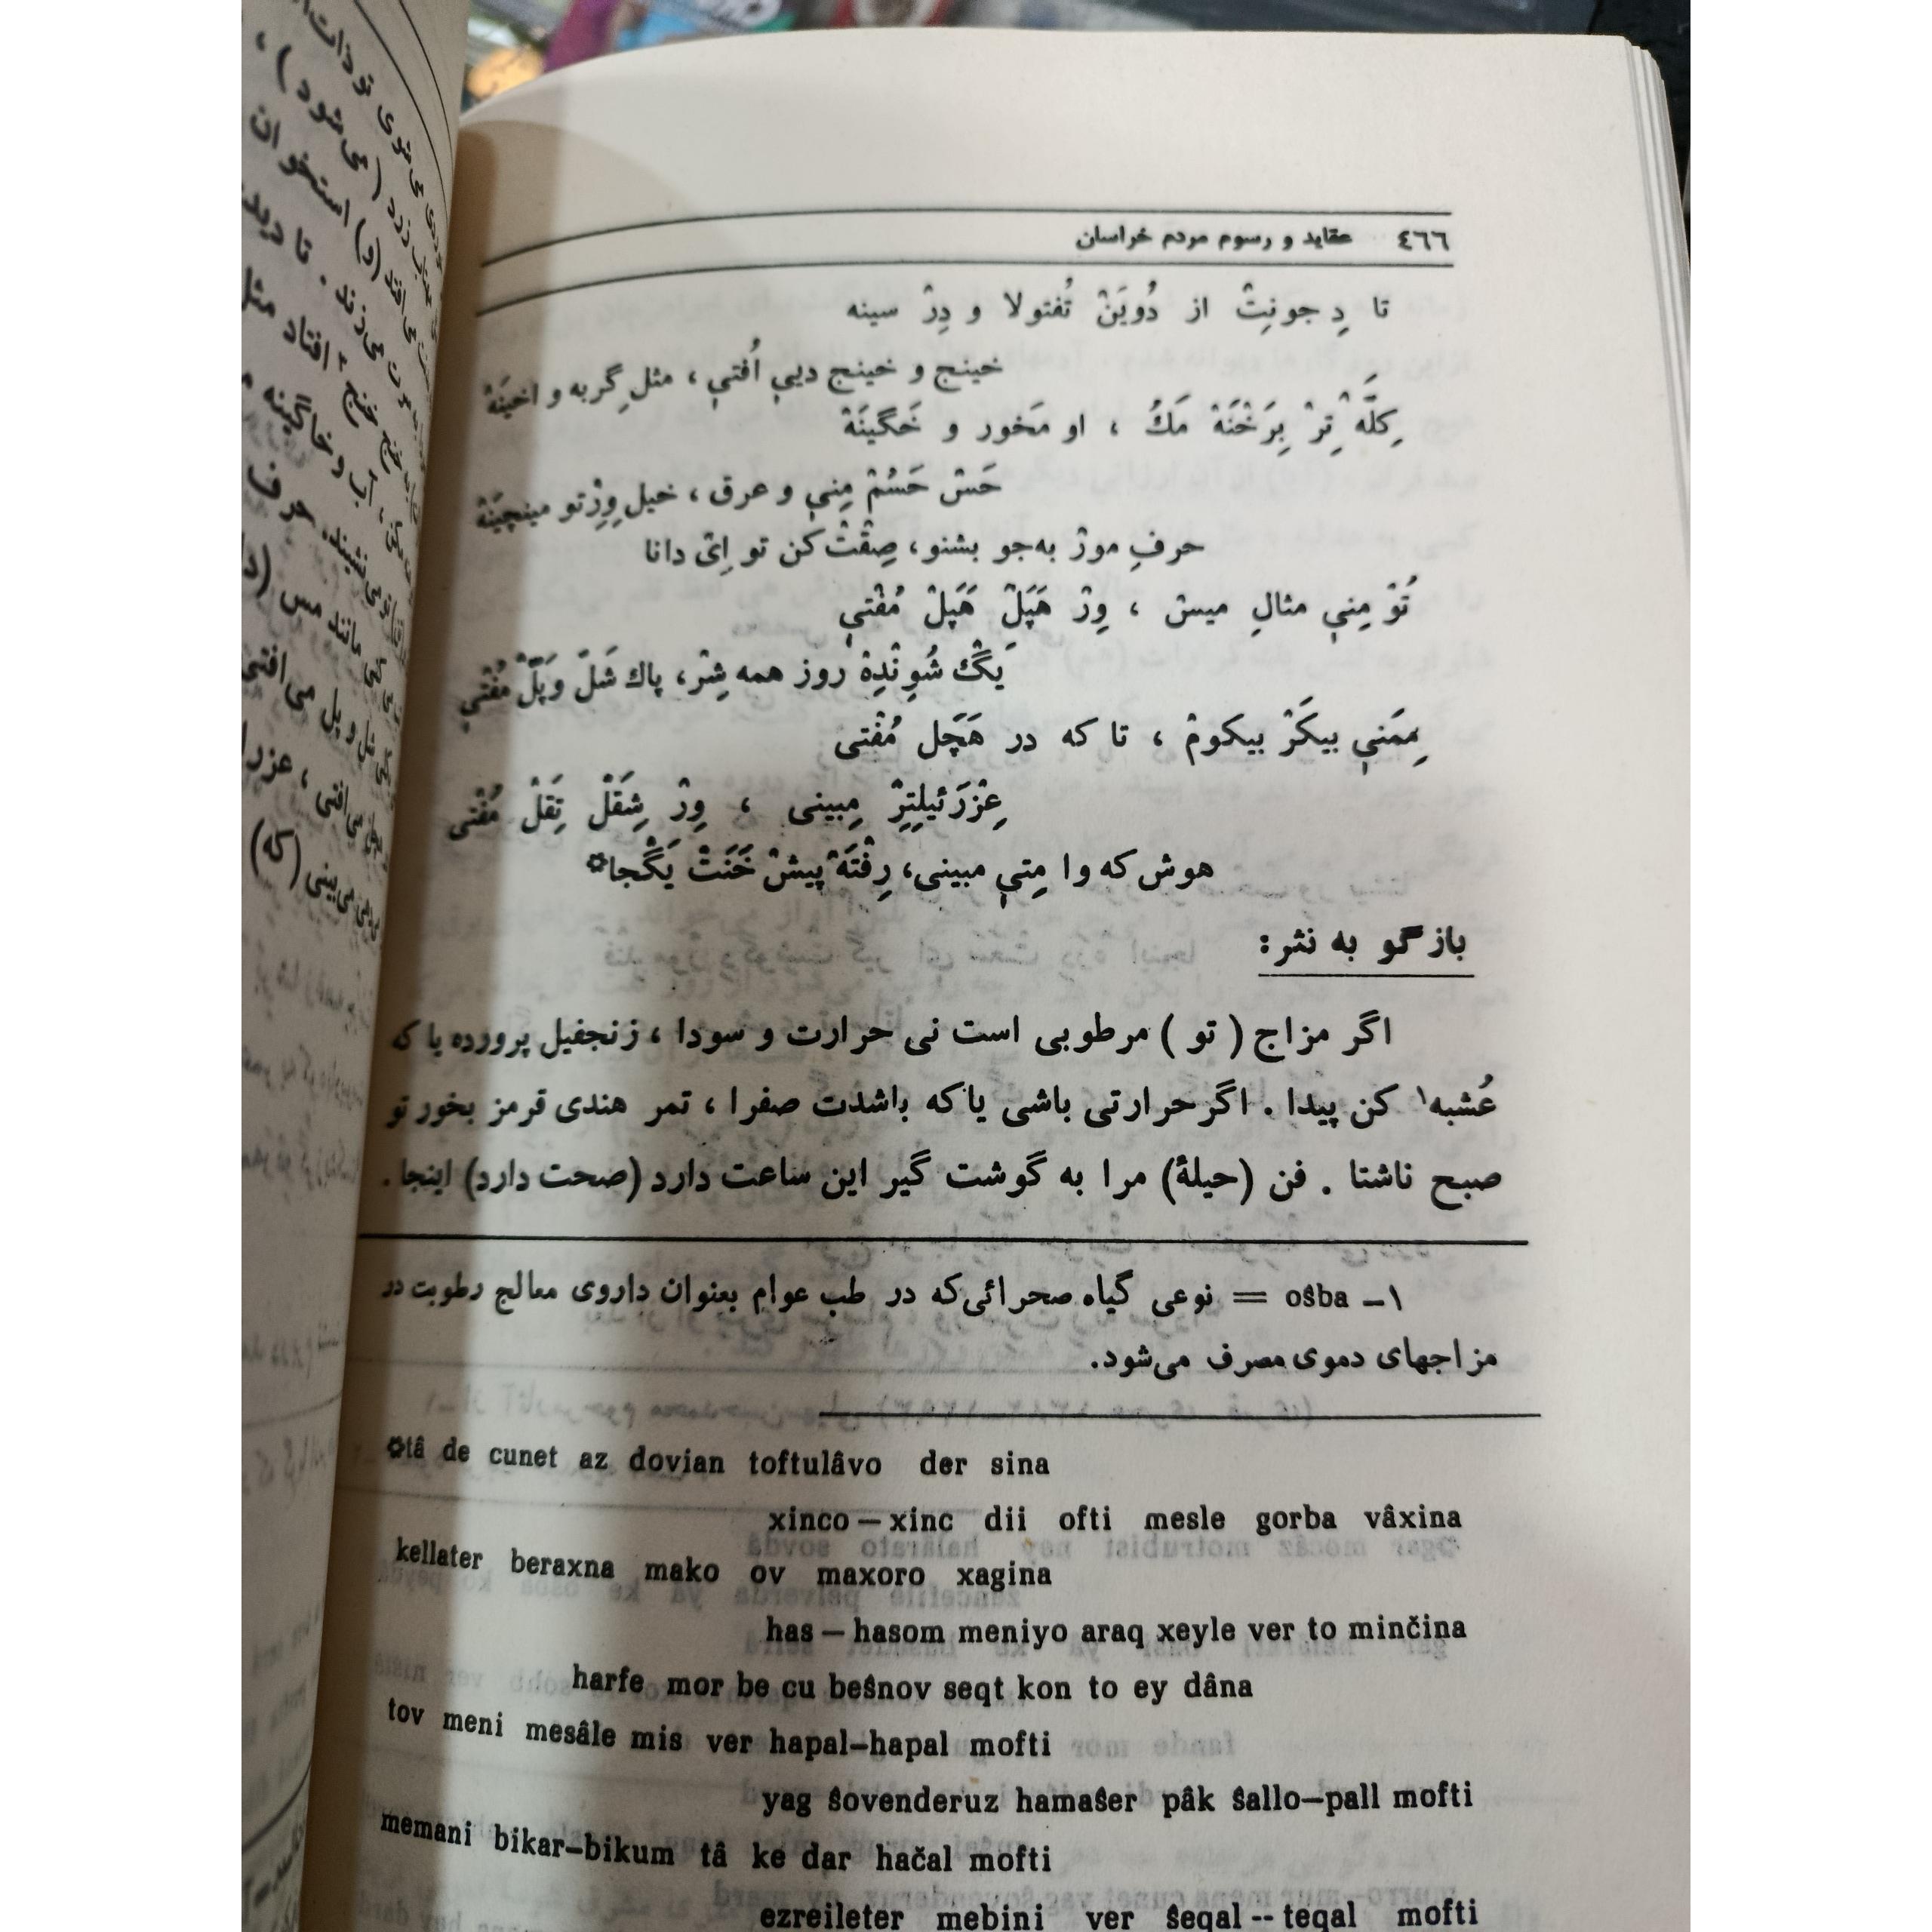 ٤٦٦ عقاید و رسوم مردم خراسان
تا دِ جونِتْ از دُویَنْ تُفتولا و دِرْ سینه
خینج و خینج دیيِ اُفتيِ ، مثلِ گربه و اخینَهْ
کِلَّه‌تِرْ بِرَخْنَهْ مَکُ ، او مَخور و خَگینَهْ
حَسْ حَسُمْ مِنيِ و عرق ، خیل وِرِْتو مینچینَهْ
حرفِ مورْ به‌جو بشنو، صِقْتْ کن تو اِیْ دانا
تُوْ مِنيِ مثالِ میسْ ، وِرْ هَپَلْ هَپَلْ مُفْتيِ
یَگْ شُوِنْدِهْ روز همه شِرْ، پاك شَلّ وَپَلّْ مُفْتيِ
مِمَنيِ بیکَرْ بیکومْ ، تا که در هَچَل مُفْتی
عِزْرَئیلِتِرْ مِبینی ، وِرْ شِقَلْ تِقَلْ مُفْتی
هوش که وا مِتيِ مبینی، رِفْتَهْ پیشْ خَنَتْ یَگْجا✿
بازگو به نثر:
اگر مزاج ( تو ) مرطوبی است نی حرارت و سودا ، زنجفیل پرورده یا که
عُشبه۱ کن پیدا . اگر حرارتی باشی یا که باشدت صفرا ، تمر هندی قرمز بخور تو
صبح ناشتا . فن (حیلهٔ) مرا به گوشت گیر این ساعت دارد (صحت دارد) اینجا .
۱ـ ošba = نوعی گیاه صحرائی‌که در طب عوام بعنوان داروی معالج رطوبت در
مزاجهای دموی مصرف می‌شود.
✿tâ de cunet az dovian toftulâvo der sina
xinco — xinc dii ofti mesle gorba vâxina
kellater beraxna mako ov maxoro xagina
has — hasom meniyo araq xeyle ver to minčina
harfe mor be cu bešnov seqt kon to ey dâna
tov meni mesâle mis ver hapal–hapal mofti
yag šovenderuz hamašer pâk šallo–pall mofti
memani bikar–bikum tâ ke dar hačal mofti
ezreileter mebini ver šeqal -- teqal mofti